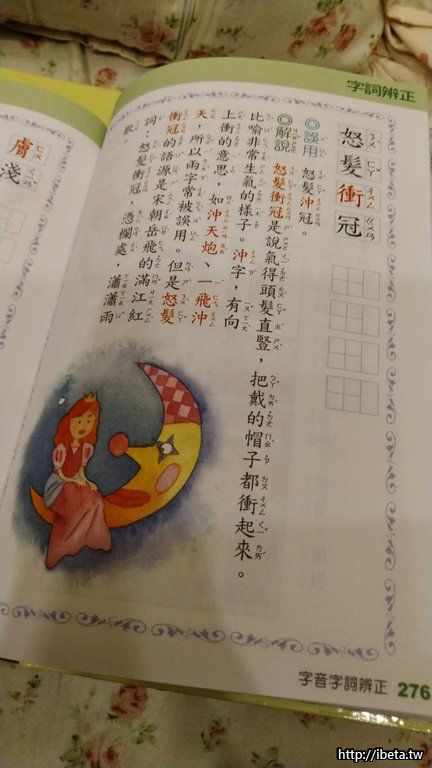 字詞辨正
怒髮衝冠
◎誤用 怒髮沖冠。
◎解說 怒髮衝冠是說氣得頭髮直豎,把戴的帽子都衝起來。
比喻非常生氣的樣子。沖字,有向
上衝的意思,如沖天炮、一飛沖
天,所以兩字常被誤用。但是怒髮
衝冠的語源是宋朝岳飛的滿江紅
詞:怒髮衝冠,憑欄處,瀟瀟雨
歇。
膚淺
字音字詞辨正 276
http://ibeta.tw